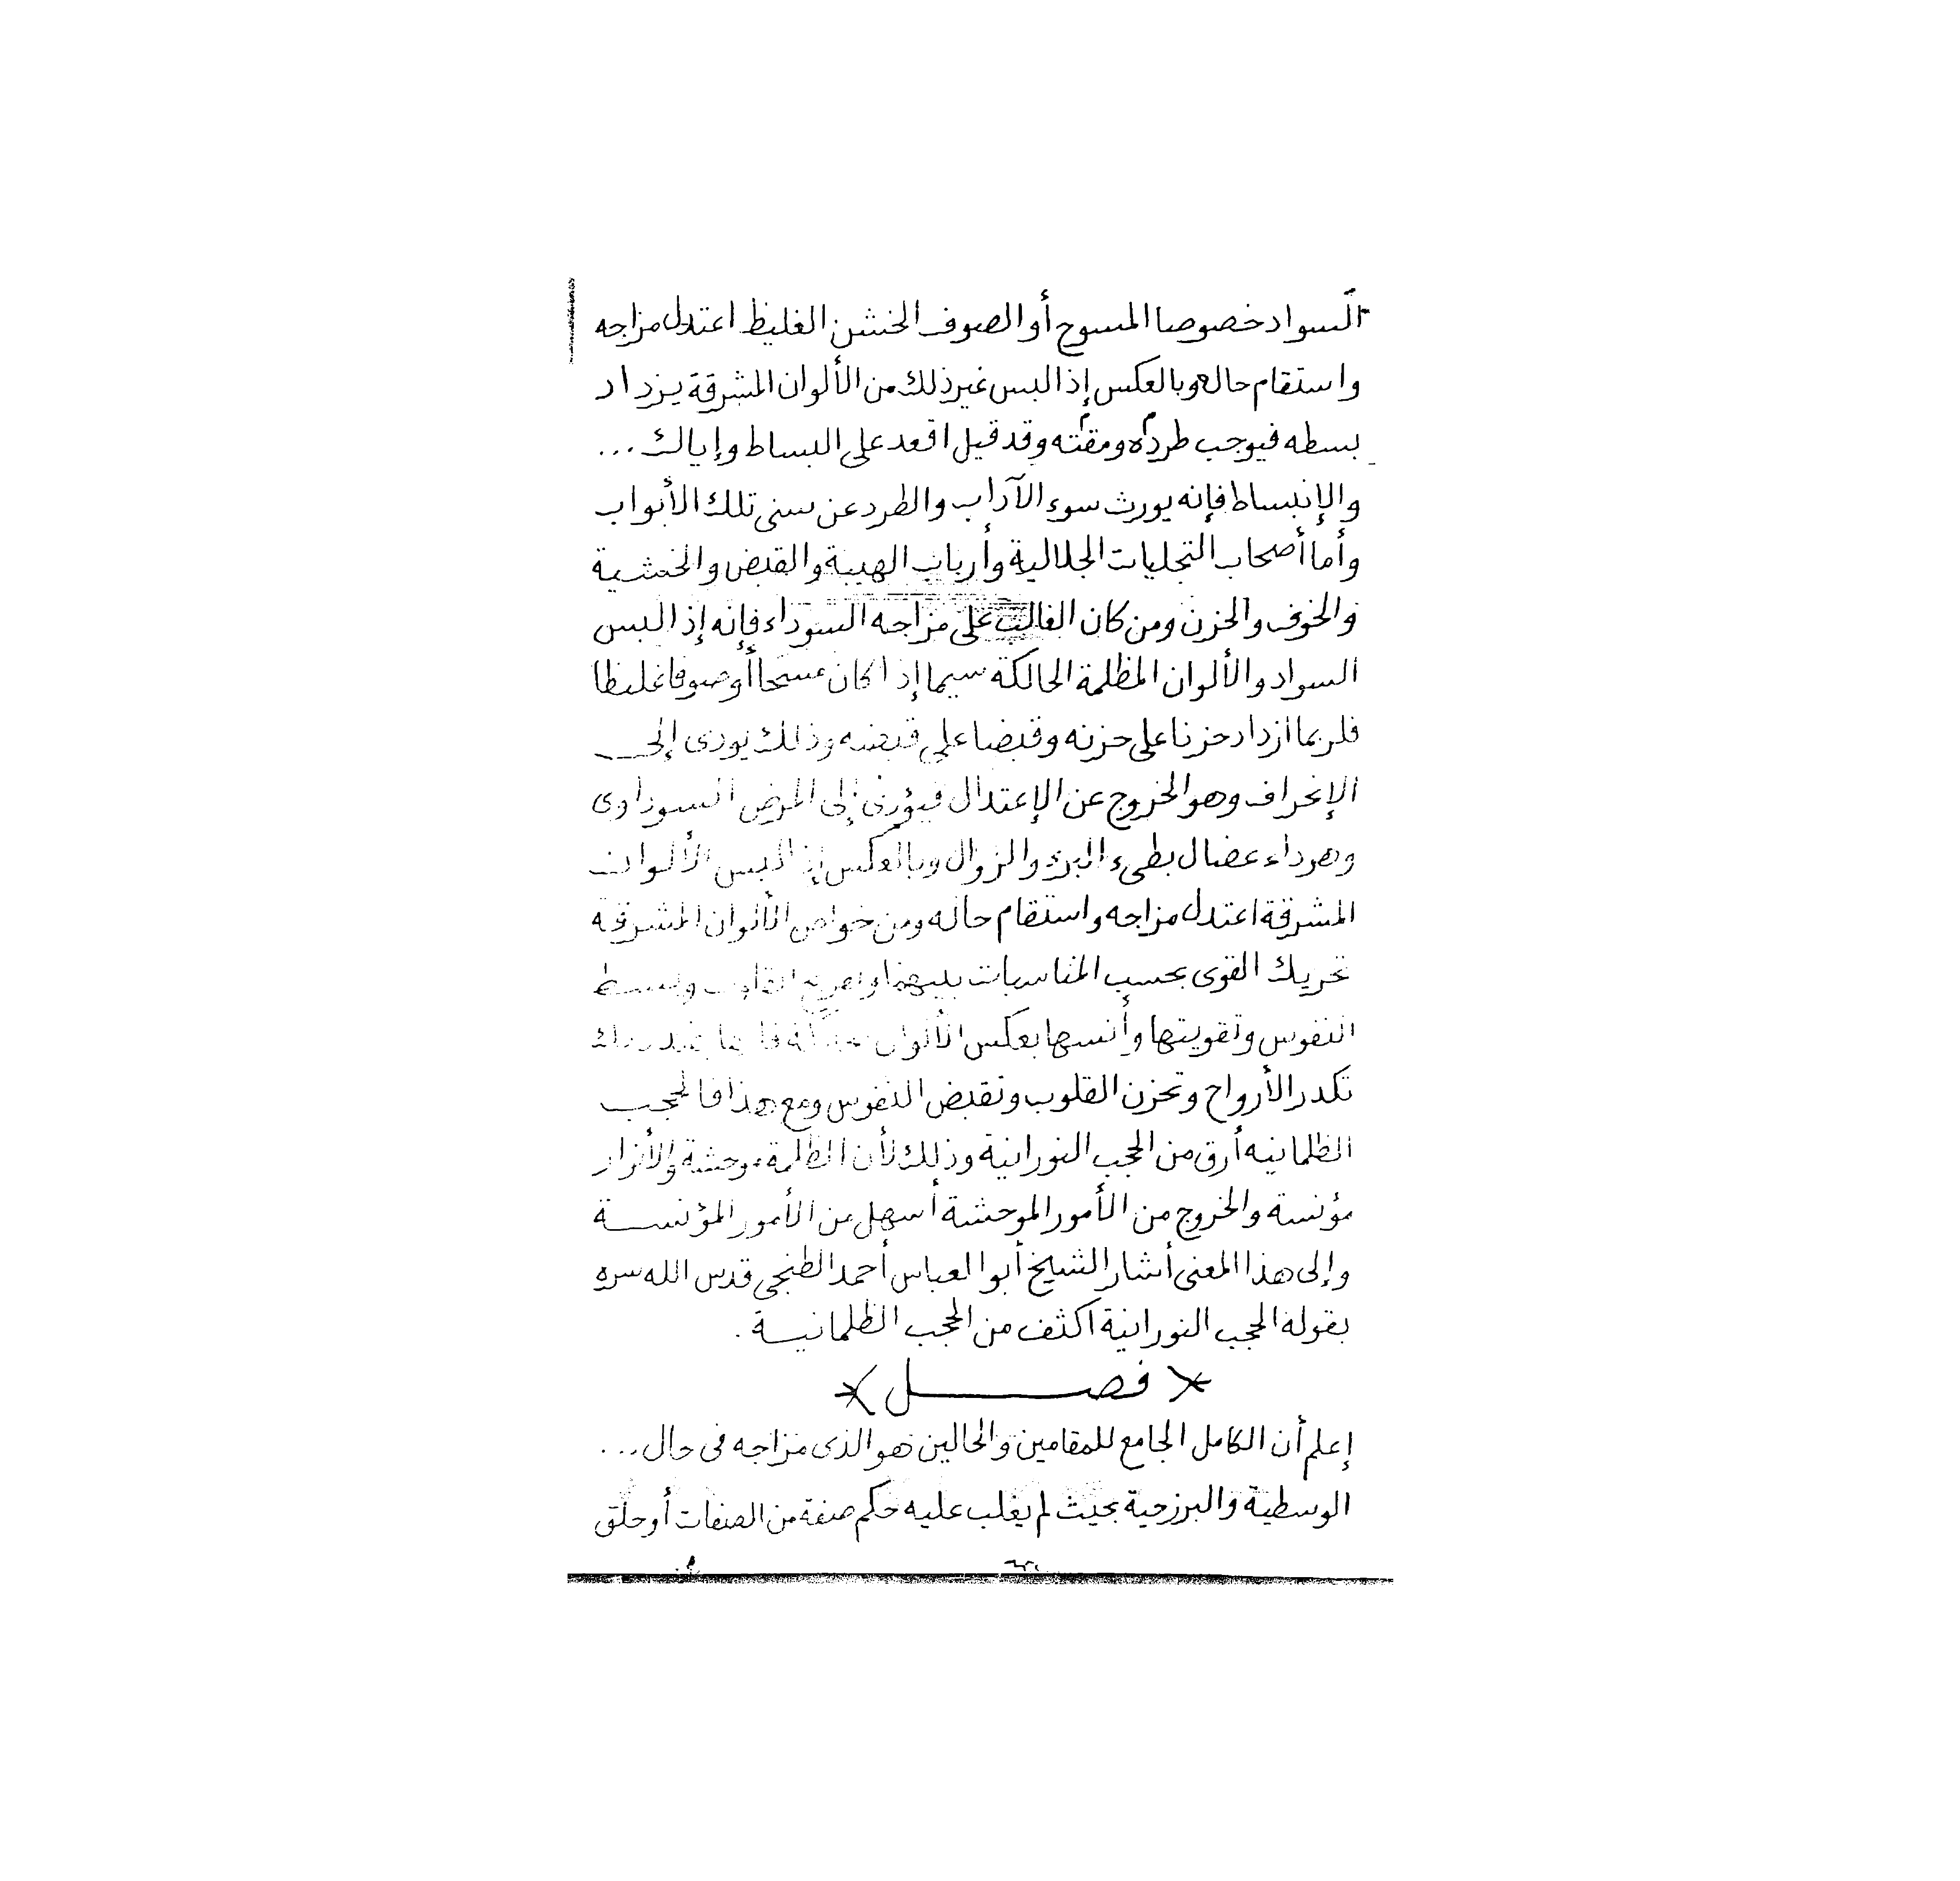 السواد خصوصا المسوح أو الصوف الخشن الغليظ اعتدل مزاجه
واستقام حاله وبالعكس إذا لبس غير ذلك من الألوان المشرقة يزداد
بسطه فيوجب طرده ومقته وقد قيل اقعد على البساط وإياك...
والإنبساط فإنه يورث سوء الآداب والطرد عن سنى تلك الأبواب
وأما أصحاب التجليات الجلالية وأرباب الهيبة والقبض والخشية
والخوف والحزن ومن كان الغالب على مزاجه السوداء فإنه إذا لبس
السواد والألوان المظلمة الحالكة سيما إذا كان مسحا أو صوفا غليظا
فلربما ازداد حزنا على حزنه وقبضا على قبضه وذلك يودى إلى
الإنحراف وهو الخروج عن الإعتدال فيؤدى إلى المرض السوداوى
وهو داء عضال بطىء البرء والزوال وبالعكس إذا لبس الألوان
المشرقة اعتدل مزاجه واستقام حاله ومن خواص الألوان المشرقة
تحريك القوى بحسب المناسبات بينهما وتفريح القلوب وبسط
النفوس وتقويتها وأنسها بعكس الألوان فإنها بضد ذلك
تكدر الأرواح وتحزن القلوب وتقبض النفوس ومع هذا فالحجب
الظلمانيه أرق من الحجب النورانية وذلك لأن الظلمة موحشة والأنوار
مؤنسة والخروج من الأمور الموحشة أسهل من الأمور المؤنسة
وإلى هذا المعنى أشار الشيخ أبو العباس أحمد الطنجى قدس الله سره
بقوله الحجب النورانية اكثف من الحجب الظلمانية .
* فصل *
إعلم أن الكامل الجامع للمقامين والحالين فهو الذى مزاجه فى حال...
الوسطية والبرزخية بحيث لم يغلب عليه حكم صفة من الصفات أو خلق